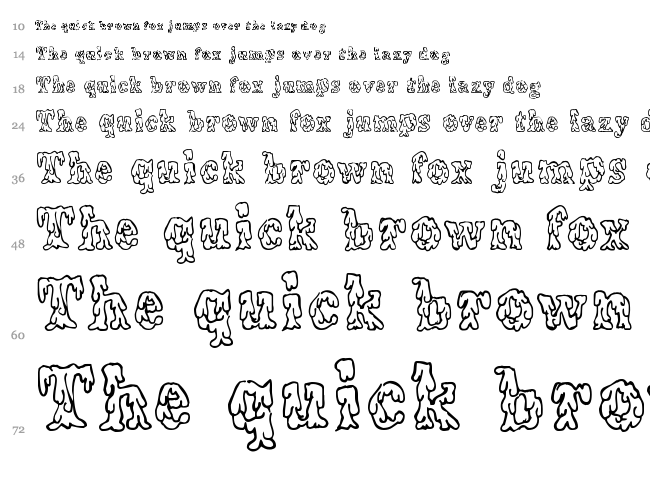 10 The quick brown fox jumps over the lazy dog
14 The quick brown fox jumps over the lazy dog
18 The quick brown fox jumps over the lazy dog
24 The quick brown fox jumps over the lazy d
36 The quick brown fox jumps
48 The quick brown fox
60 The quick brown
72 The quick bro